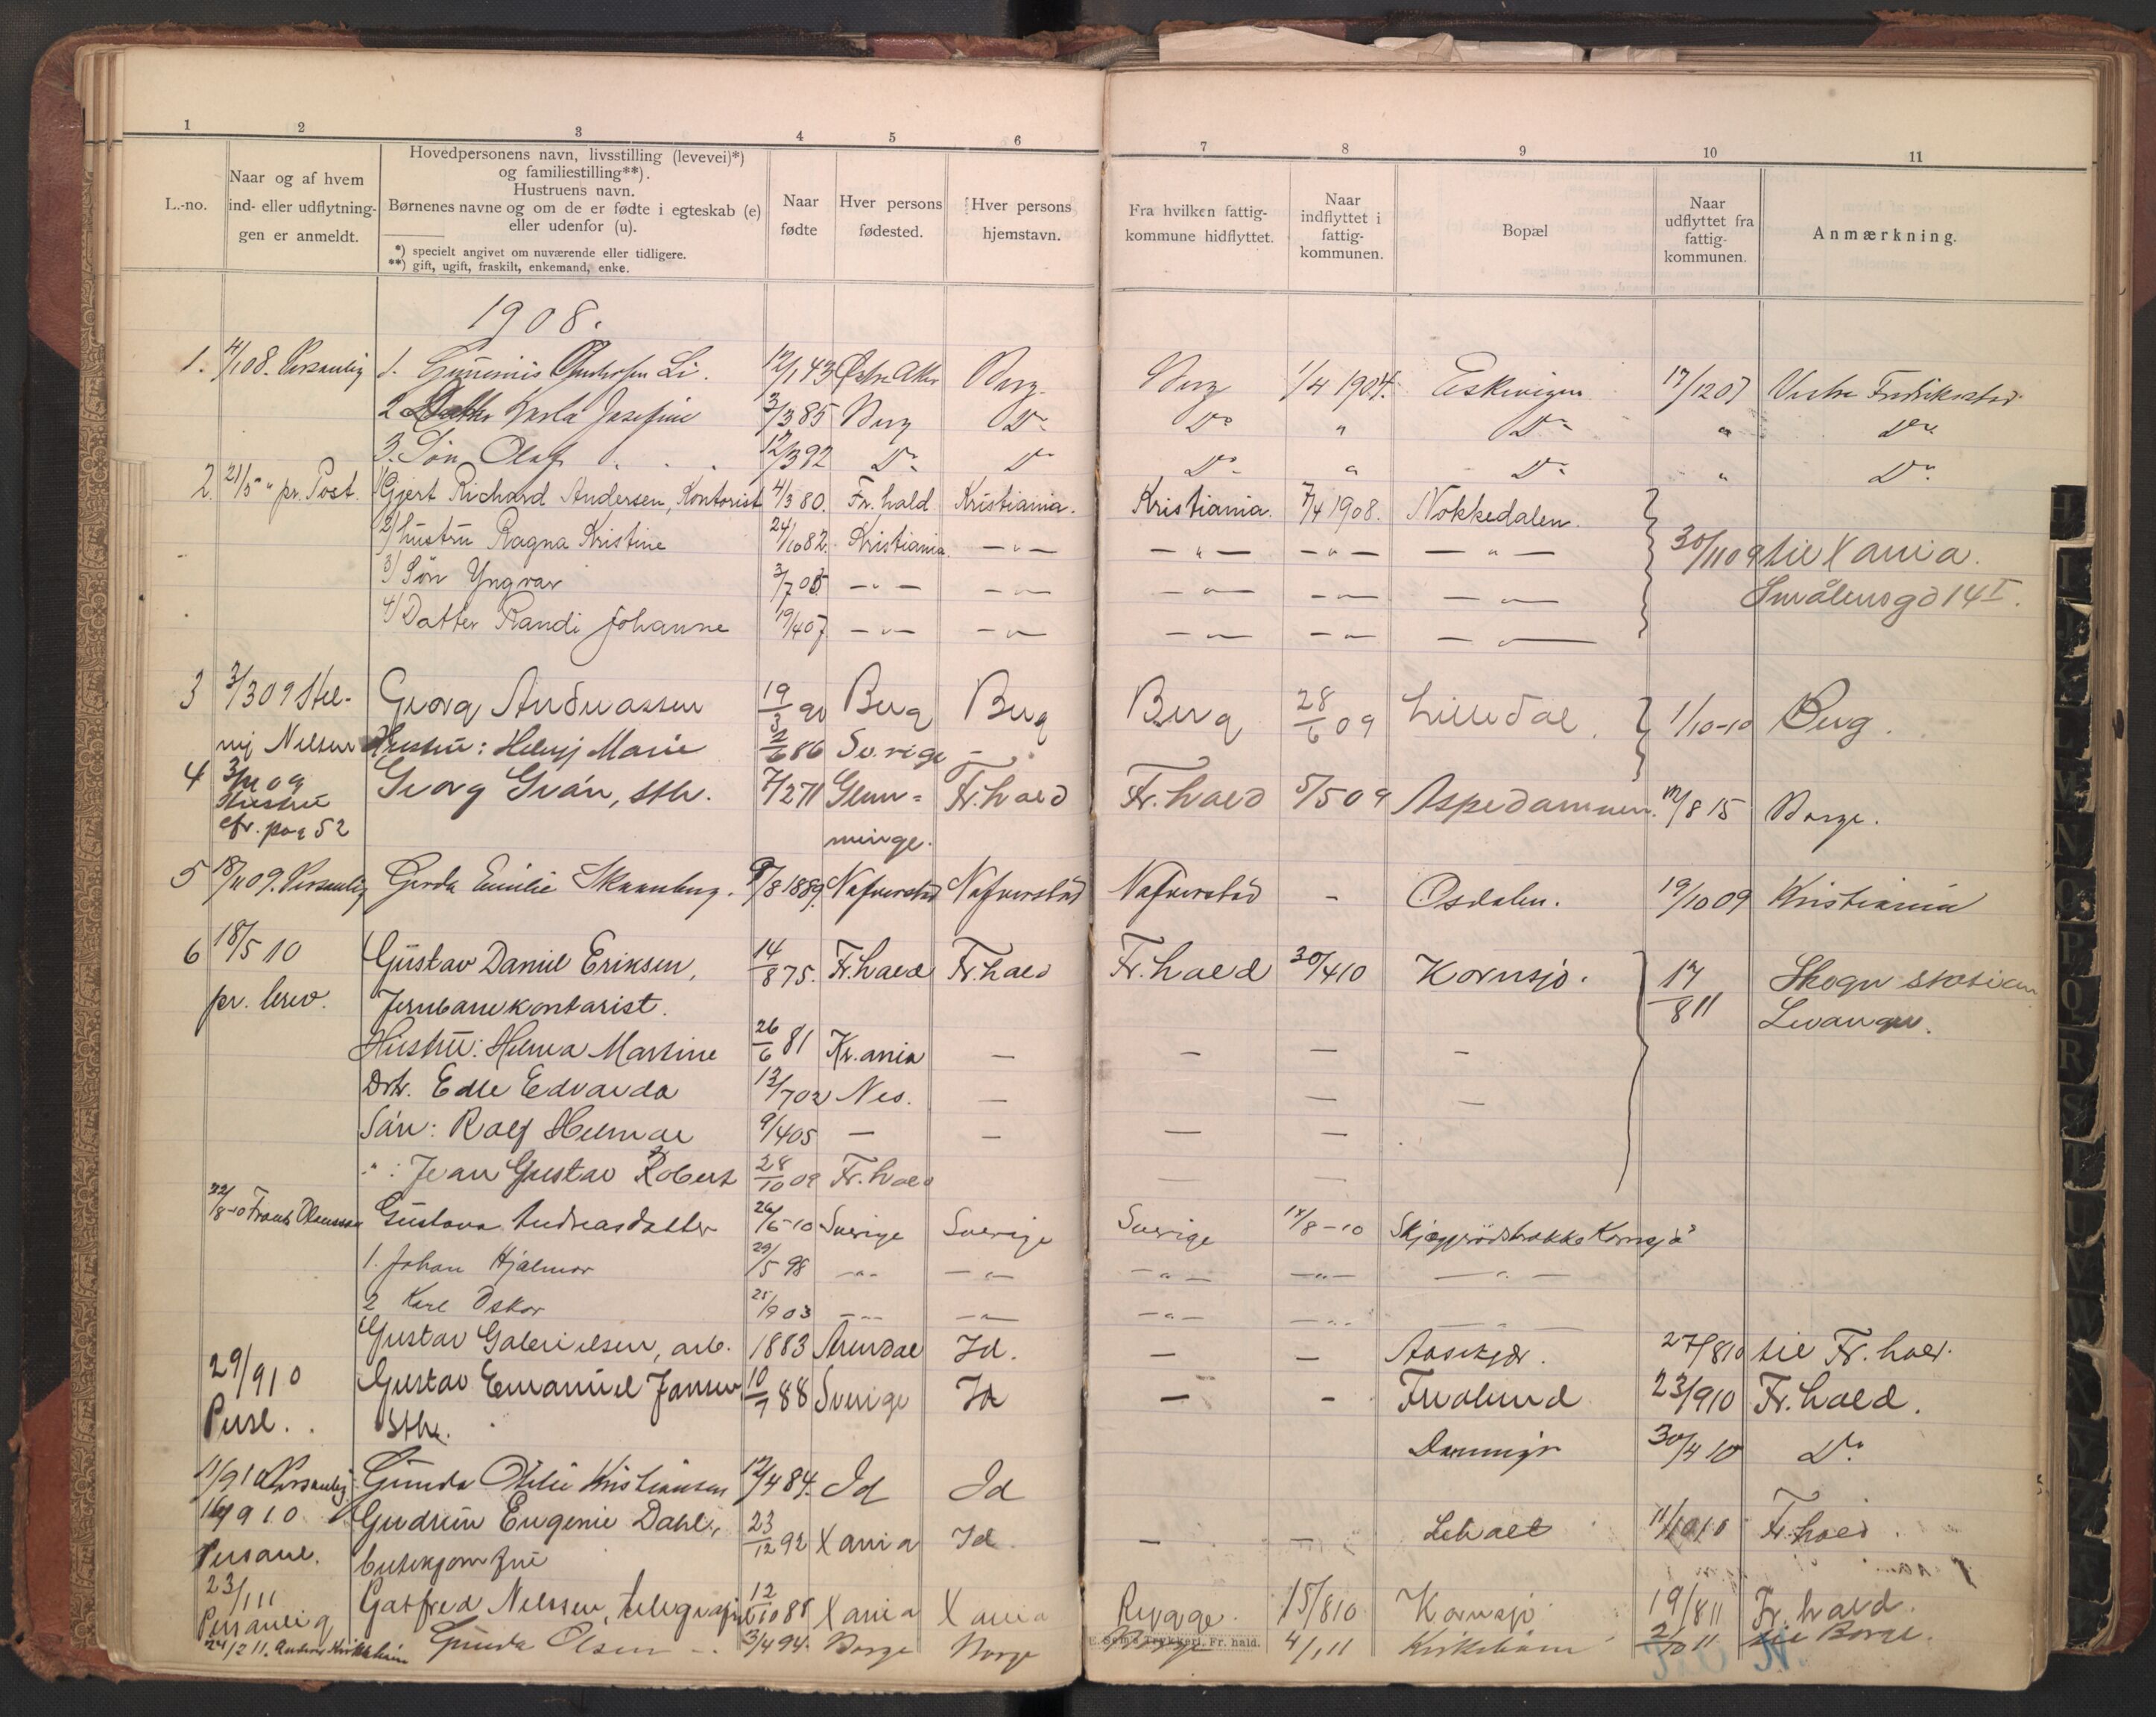 1 2 3 4 5 6 7 8 9 10 11
L.-no.
Naar og af hvem
ind- eller udflytnin-
gen er anmeldt.
Hovedpersonens navn, livsstilling (levevei)*)
og familiestilling**).
Hustruens navn.
Børnenes navne og om de er fødte i egteskab (e)
eller udenfor (u).
*) specielt angivet om nuværende eller tidligere.
**) gift, ugift, fraskilt, enkemand, enke.
Naar
fødte
Hver persons
fødested.
Hver persons
hjemstavn.
Fra hvilken fattig-
kommune hidflyttet.
Naar
indflyttet i
fattig-
kommunen.
Bopæl
Naar
udflyttet fra
fattig-
kommunen.
Anmærkning.
1908.
1. 4/1 08. Personlig 1. Li. 12/1 43 Østre Aker Berg Berg 1/4 1904. Eskevigen 17/12 07 Vestre Fredrikstad
2 Datter Karla Josefine 3/3 85 Berg Do Do " Do " Do
3. Søn Olaf 12/3 92 Do Do Do " Do " Do
2. 21/5 " pr. Post. 1) Gjert Richard Andersen, Kontorist 4/3 80. Fr.hald Kristiania. Kristiania. 7/4 1908. Nokkedalen.
2) hustru Ragna Kristine 24/10 82. Kristiania — " — — " — — " — — " — 30/11 09 til Xania.
3) Søn Yngvar 3/7 05 — " — — " — — " — — " — — " — Smålensgd 14 I.
4) Datter Randi Johanne 19/4 07 — " — — " — — " — — " — — " —
3 3/3 09 Hel- Georg Andreassen 19/3 90 Berg Berg Berg 28/6 09 Lilledal 1/10-10 Berg.
mj Nelsen Hustru: Helmj Marie 2/6 86 Sverige —
4 Georg Grán, sth. 7/2 71 Glem- Fr.hald Fr.hald 5/5 09 Aspedammen. 12/8 15 Borge.
Hustru minge.
cfr. pag 52
5 18/11 09. Personlig Gerda Emilie 8/8 1889. Nafverstad Nafverstad Nafverstad - Osdalen. 19/10 09 Kristiania
6 18/5 10 Gustav Daniel Eriksen, 14/8 75. Fr.hald Fr.hald Fr.hald 30/4 10 Kornsjø. 17/8 11 Skogn station
pr. brev. Jernbanekontorist. Levanger.
Hustru: Helma Martine 26/6 81 Kr.ania — — — -
Dtr. Edle Edvarda 13/7 02 Nes. — — —
Sön: Ralf Helmar 9/4 05 — — — —
" : Jean Gustav Robert 28/10 09 Fr.hald — —
22/8-10 Frants Olausson Gustava Andreasdatter 26/6-10 Sverige Sverige Sverige 15/8-10 Skjeggerödsbrække Kornsjø
1. Johan Hjalmar 29/5 98 — " — — " — — " — — " — — " —
2 Karl Oskar 25/9 03 — " — — " — — " — — " — — " —
Gustav Galerielsen, arb. 1883 Arendal Id. — — Aasekjær. 27/8 10 til Fr.hald.
29/9 10 Gustav Emanuel Jansen 10/7 88 Sverige Id — - Fredlund 23/9 10 Fr.hald.
Persl. Sthr.
11/9 10 Personlig Gunda Otilie Kristiansen 12/4 84. Id Id 30/4 10 Do
16/9 10 Gudrun Eugenie Dahl, 23/12 92 Xania Id — — 11/10 10 Fr.hald.
Personl. butikjomfru
23/1 11 Gotfred Nilssen, telegrafist 12/10 88 Xania Xania Rygge. 15/8 10 Kornsjø 19/8 11 Fr.hald.
Personlig
24/2 11. Anders Kirkeholm Gunda Olsen 3/4 94. Borge Borge Borge 4/1 11 Kirkeholm 2/10 11 til Borge.
E. Sem's Trykkeri, Fr.hald.